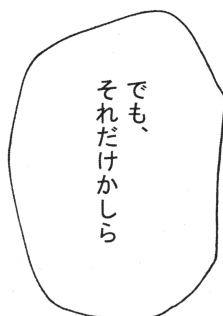 でも、
それだけかしら